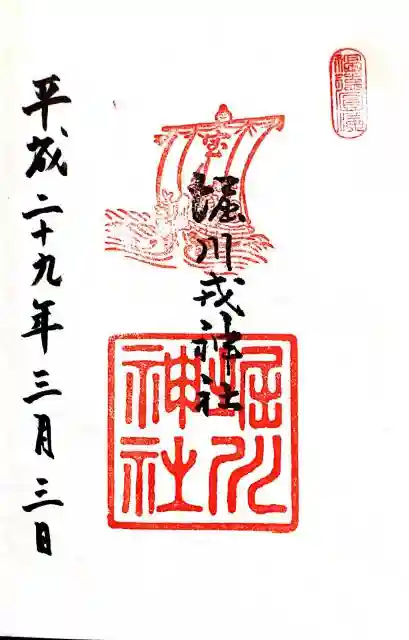 堀川戎神社
平成二十九年三月三日
宝
堀川
神社